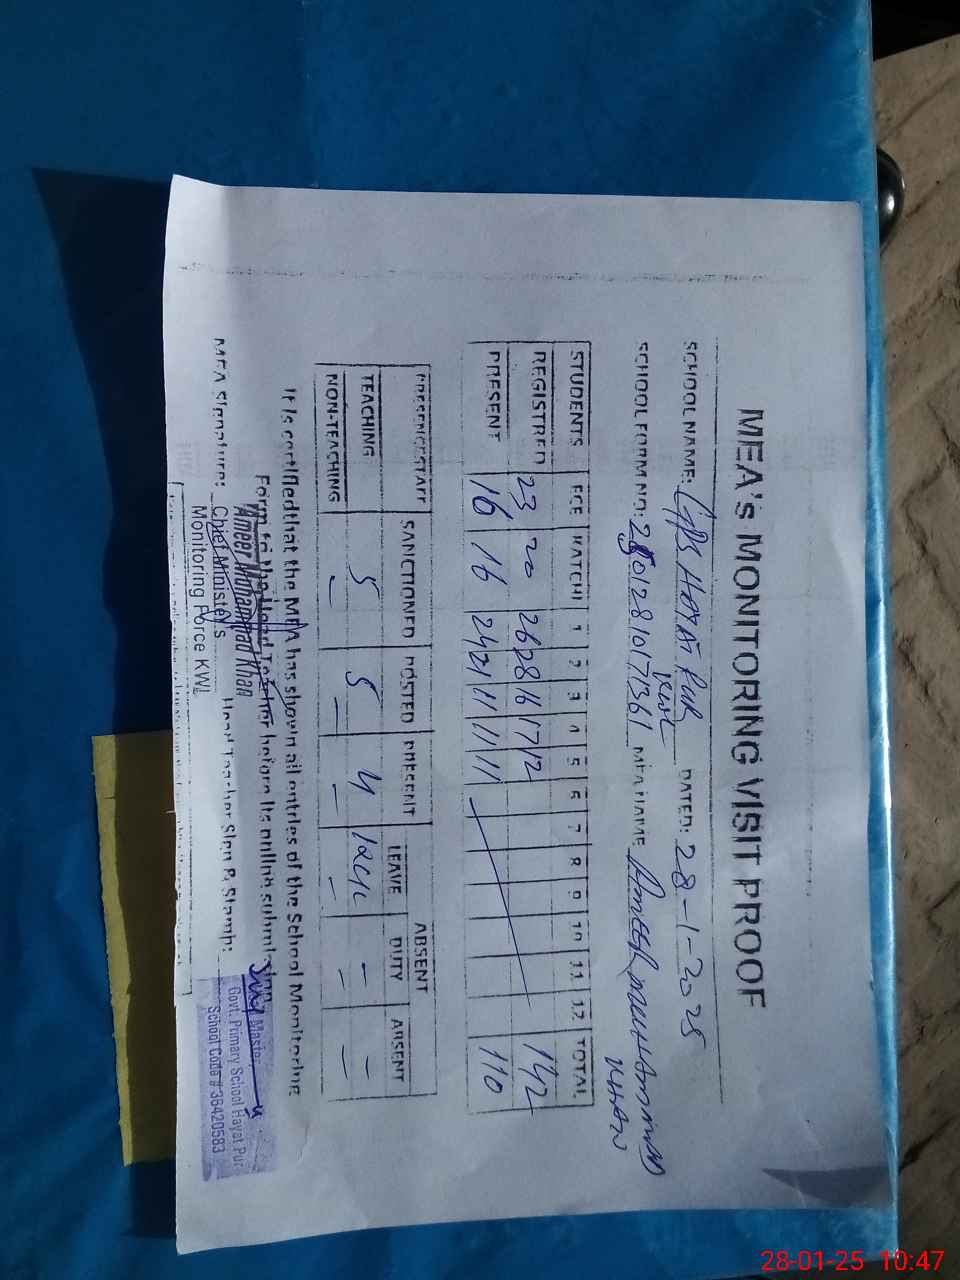 MEA's MONITORING VISIT PROOF
SCHOOL NAME: GPS HAYAT PUR DATED: 28-1-2025
SCHOOL FORM NO: MEA NAME AMEER MUHAMMAD
KHAN
STUDENTS ECE KATCHI 1 2 3 4 5 6 7 8 9 10 11 12 TOTAL
REGISTRED 23 20 26 28 16 17 12 142
PRESENT 16 16 24 21 11 11 11 110
PRESENCE STAFF SANCTIONED POSTED PRESENT ABSENT
LEAVE DUTY ABSENT
TEACHING 5 5 4 - -
NON-TEACHING - - - - - -
It is certified that the MEA has shown all entries of the School Monitoring
Form to the Head Teacher before its online submission
Ameer Muhammad Khan
MEA Signature: Chief Minister's Head Teacher Sign & Stamp:
Monitoring Force KWL
Master
Govt. Primary School Hayat Pur
School Code # 36420583
28-01-25 10:47